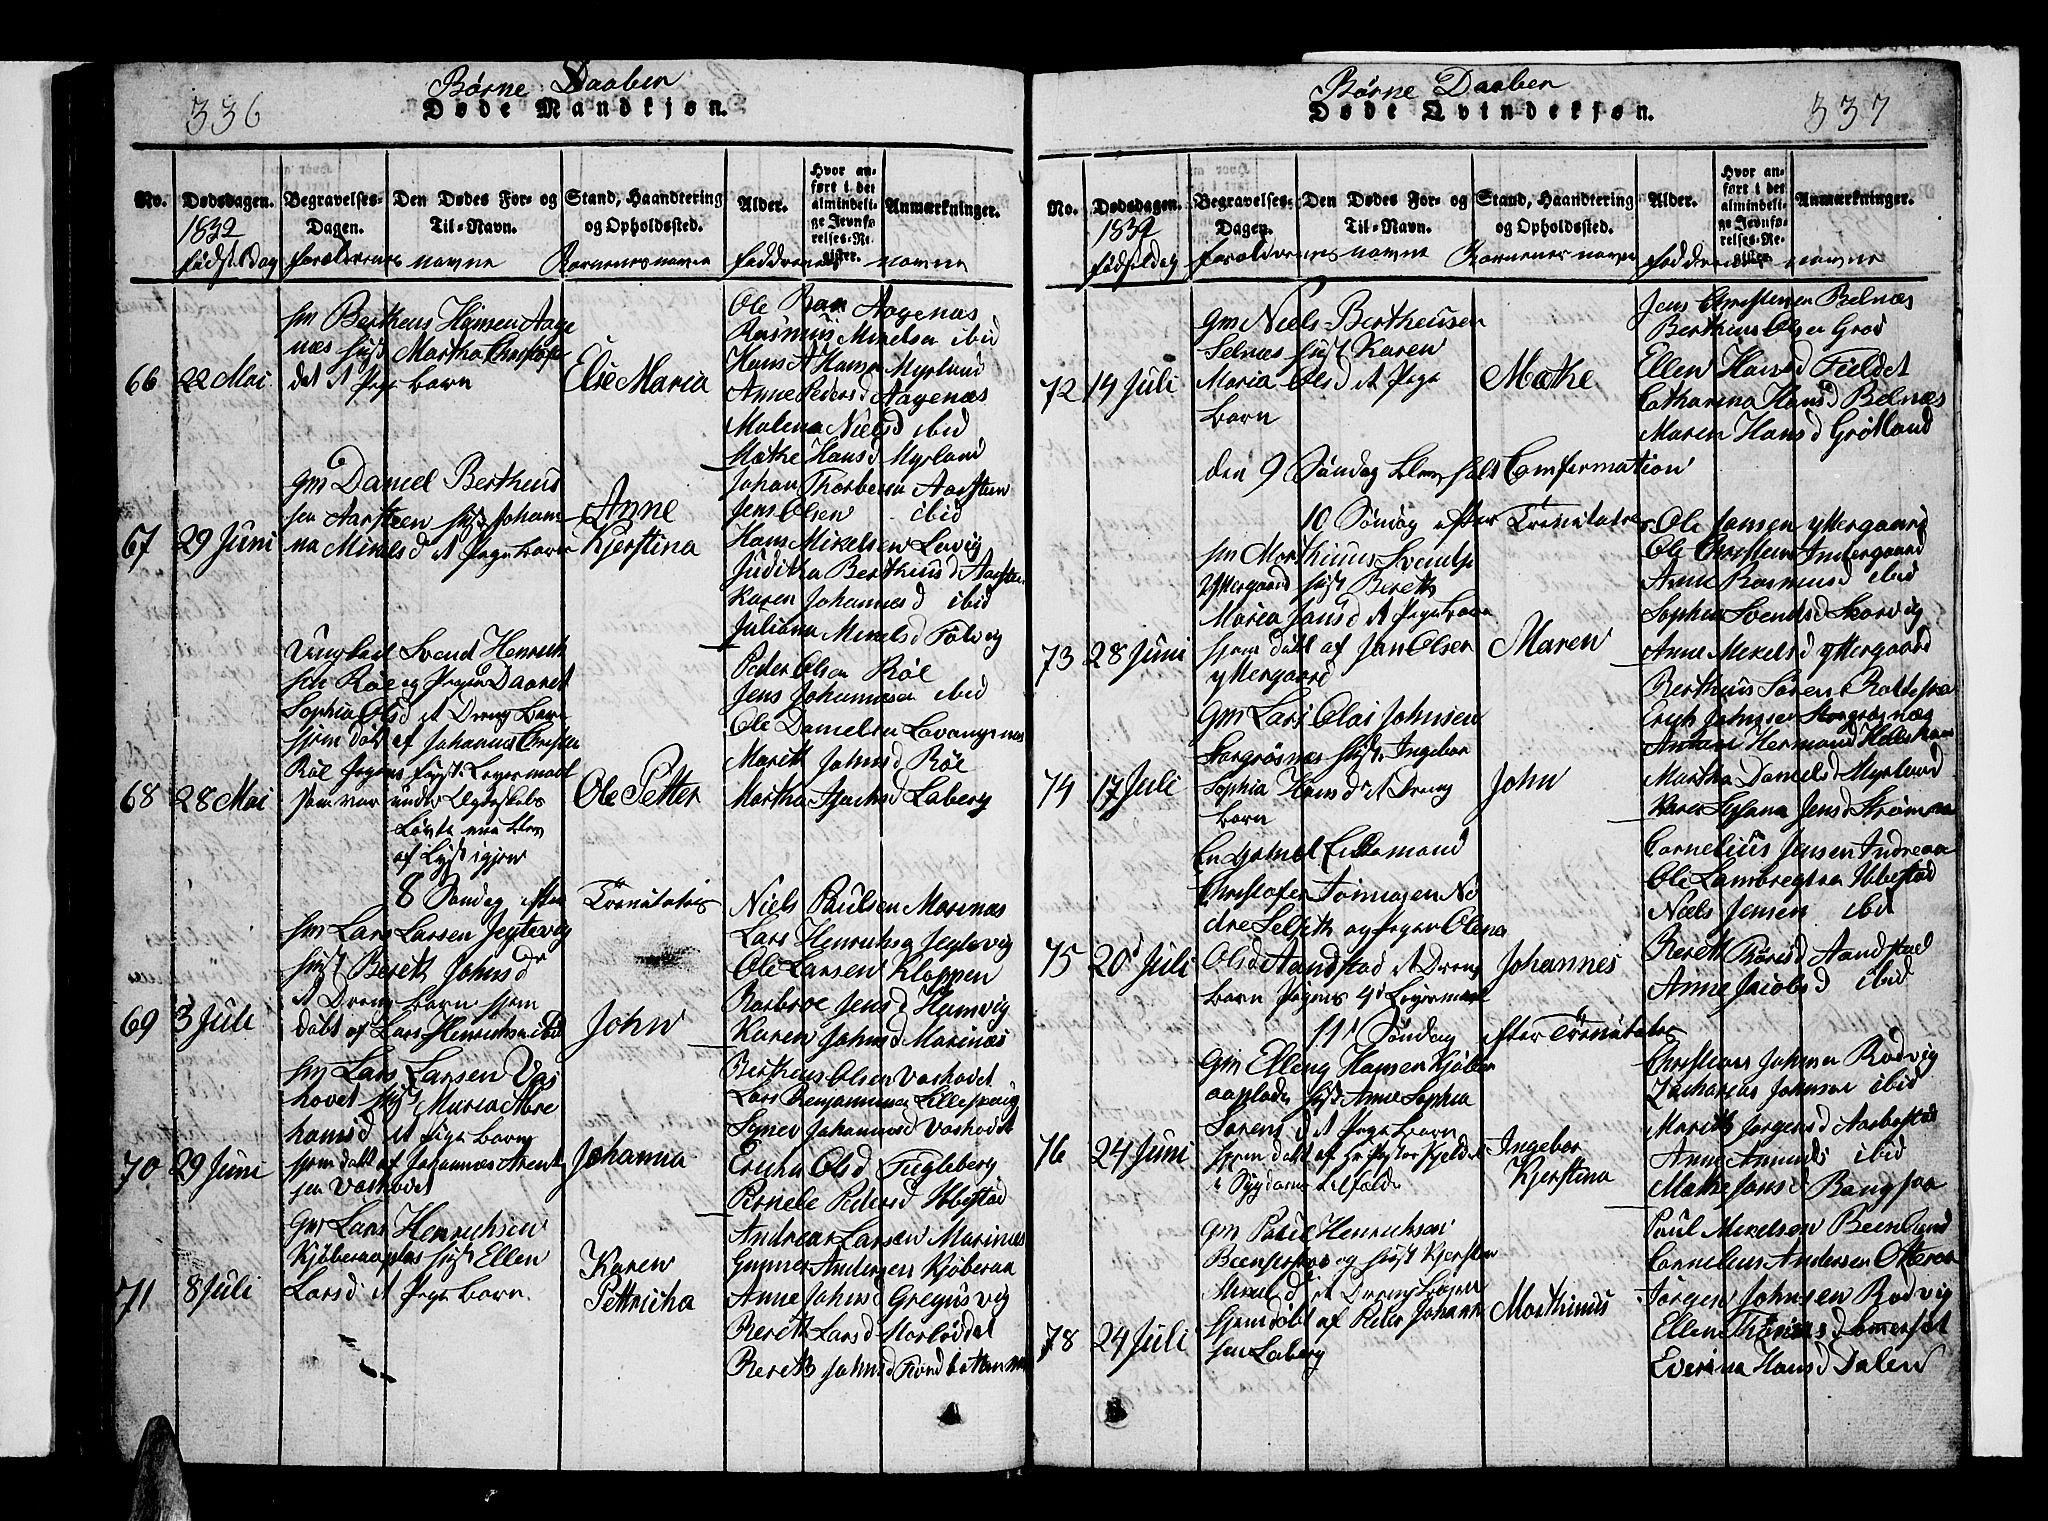 336
Børne Daaben
Døde Mandkjøn.
No.
Dødsdagen.
1832
fødselsdag
Begravelses-
Dagen.
Den Dødes For- og
Til-Navn.
forældrenes navne
Stand, Haandtering
og Opholdssted.
Børnenes navne
Alder.
Hvor an-
ført i det
almindeli-
ge Jevnfø-
relses-Re-
gister.
Anmærkninger.
faddrenes navne
66
22 Mai
Bertheus Hansen Aage
næs hust Martha Christofe
det et Pige barn
Else Maria
Ole Aagenæs
Rasmus Mikelsen ibid
Hans A Hansen Myrland
Anne Peders d Aagenæs
Malena Niels d ibid
Mæthe Hans d Myrland
67
29 Juni
gm Daniel Bertheus
sen Aarsteen hust Johan
na Mikels d et Pige barn
Anne
Kjerstina
Johan Thorbersen Aarsteen
Jens Olsen ibid
Hans Mikelsen Lavig
Juditha Bertheus d Aarsten
Karen Johannes d ibid
Juliana Mikels d Følvig
68
28 Mai
Ungkarl Svend Henrich
sen Røl og Pigen Daaret
Sophia Ols d et Dreng barn
hjem døbt af Johannes Christen
Røl Pigens første Leiermaal
som var under Ægteskabs
Løvte men blev
af Lyst igjen
Ole Petter
Peder Olsen Røl
Jens Johannesen ibid
Ole Danielsen Lavangsnæs
Marith Johns d Røl
Martha Isachs d Laberg
8 Søndag efter Trenitatis
69
3 Juli
Lars Larsen Jegtevig
hust Bereth Johns d
et Dreng barn hjem
døbt af Lars Henrichsen ibid
John
Niels Paulsen Marinæs
Lars Henrichsen Jegtevig
Ole Larsen Kloppen
Barbroe Jens d Hamvig
Karen Johns d Marinæs
70
29 Juni
Lars Larsen Vas
hovet hust Maria Abra
hams d et Pige barn
hjem døbt af Johannes Arent
sen Vashovet
Johanna
Bertheus Olsen Vashovet
Lars Benjaminsen Lilleseng
Signe Johannes d Vashovet
Ericha Ols d Fugleberg
Pernele Peders d Ibbestad
71
8 Juli
gm Lars Henrichsen
Kjøberaaplas hust Ellen
Lars d et Pige barn
Karen
Petricha
Andreas Larsen Marinæs
Gunner Andersen Kjøberaa
Anne Johns d Gregusvig
Bereth Lars d Storløddet
Bereth Johns d Fiordbottennen
337
Børne Daaben
Døde Qvindekjøn.
No.
Dødsdagen.
1832
fødselsdag
Begravelses-
Dagen.
Den Dødes For- og
Til-Navn.
forældrenes navne
Stand, Haandtering
og Opholdssted.
Børnenes navne
Alder.
Hvor an-
ført i det
almindeli-
ge Jevnfø-
relses-Re-
gister.
Anmærkninger.
faddrenes navne
72
14 Juli
gm Niels Bertheusen
Selnæs hust Karen
Maria Ols d et Pige
barn
Mæthe
Jens Christensen Belnæs
Bertheus Olsen Grød
Ellen Hans d Fieldet
Catharina Hans d Belnæs
Maren Hans d Grøtland
den 9 Søndag blev holt Comfermation
10 Søndag efter Trenitates
73
28 Juni
Morthinus Svends
Yttergaard hust Bereth
Maria Jans d et Pige barn
hjem døbt af Jan Olsen
yttergaard
Maren
Ole Jansen yttergaard
Ole Christensen Indergaard
Anne Rasmus d ibid
Sophia Svends d Skarvig
Anne Mikels d yttergaard
74
17 Juli
gm Lars Olai Johnsen
Storgrøsnæs hust Ingebor
Sophia Hans d et Dreng
barn
John
Bertheus Sørens
Erich Johnsen Storgrøsnæs
Antoni Hermans
Martha Daniels d Myrland
Jens d Strømaa
75
20 Juli
Christofer Tønnesen Ne
dre Selseth og Pigen Olena
Ols d Aandstad et Dreng
barn Pigens 4d Leiermaal
Johannes
Cornelius Jensen Andreaa
Ole Lambregtsen Ibbestad
Niels Jensen ibid
Bereth Børes d Aandstad
Anne Jacobs d ibid
11 Søndag efter Trenitates
76
24 Juni
gm Elling Hansen Kjøber
aaplads hust Anne Sophia
Sørens d et Pige barn
hjem døbt af
i Sygdoms tilfælde
Ingebor
Kjerstina
Christian Johnsen Rødvig
Zacharias Johnsen ibid
Marith Jørgens d Aarbostad
Anne Amunds ibid
Mathe Jans d Bangsjaa
78
24 Juli
gm Paul Henrichsen
og hust Kjersten
Mikels d et Dreng barn
hjemdøbt af Peter Johann
sen Laberg
Morthinus
Paul Mikelsen Beenlund
Cornelius Andersen Otteraa
Jørgen Johnsen Rødvig
Ellen Thomas d Sommerset
Everina Hans d Dalen